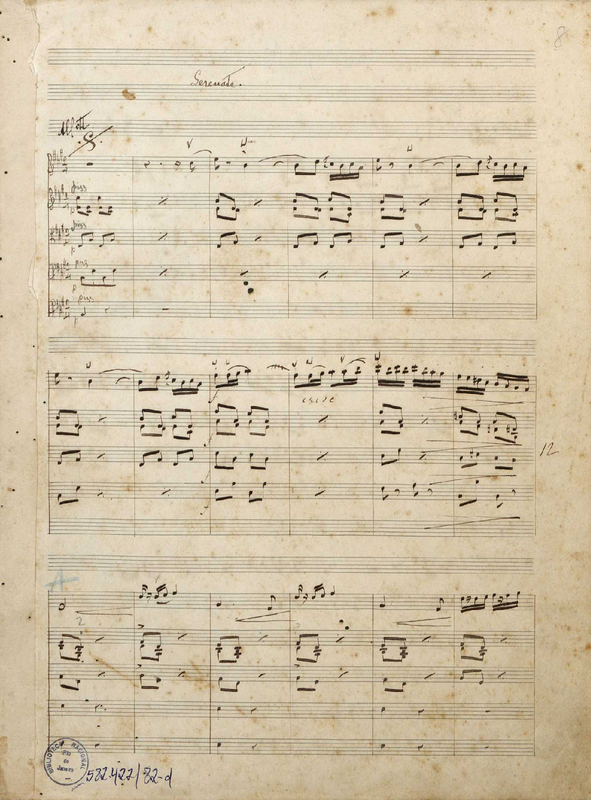 8
Serenata.
Alltt
pizz
p
pizz
p
pizz
p
pizz
p
cresc
12
A
2
BIBLIOTECA NACIONAL
Rio de Janeiro